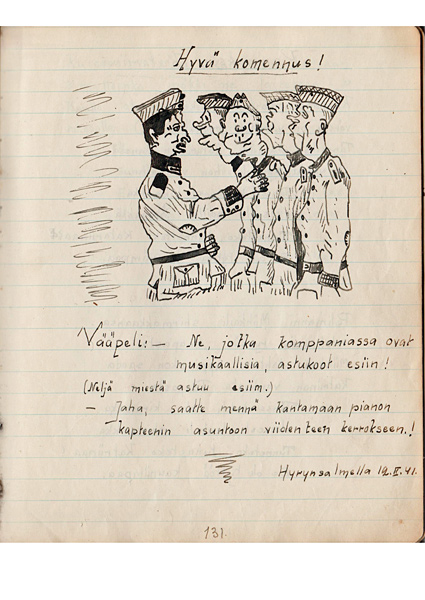 Hyvä komennus!
Vääpeli: – Ne, jotka komppaniassa ovat
musikaallisia, astukoot esiin!
(Neljä miestä astuu esiim.)
– Jaha, saatte mennä kantamaan pianon
kapteenin asuntoon viidenteen kerrokseen.!
Hyrynsalmella
131.